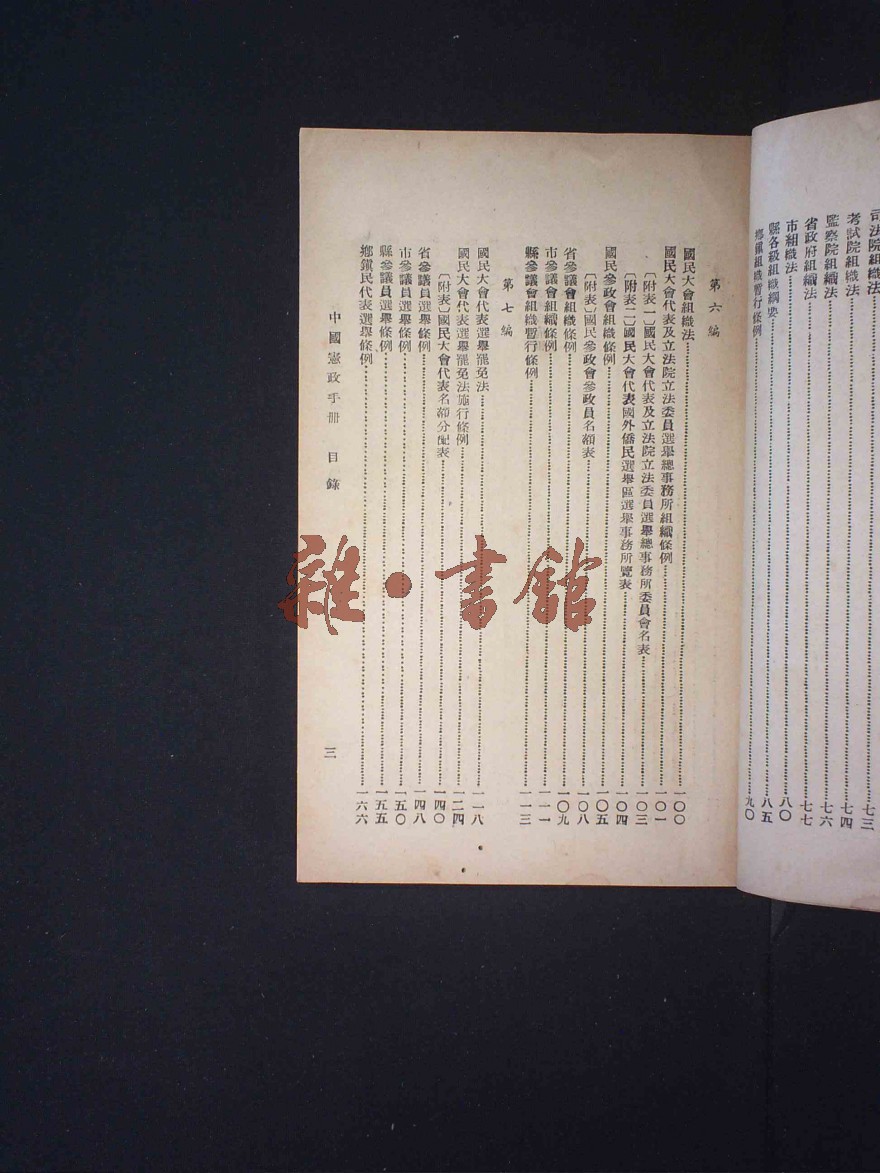 司法院組織法……七三
考試院組織法……七四
監察院組織法……七六
省政府組織法……七七
市組織法……八〇
縣各級組織綱要……八五
鄉鎮組織暫行條例……九〇
第六編
國民大會組織法……一〇〇
國民大會代表及立法院立法委員選舉總事務所組織條例……一〇一
〔附表一〕國民大會代表及立法院立法委員選舉總事務所委員會名表……一〇三
〔附表二〕國民大會代表國外僑民選舉區選舉事務所覽表……一〇四
國民參政會組織條例……一〇五
〔附表〕國民參政會參政員名額表……一〇八
省參議會組織條例……一〇九
市參議會組織條例……一一一
縣參議會組織暫行條例……一一三
第七編
國民大會代表選舉罷免法……一一八
國民大會代表選舉罷免法施行條例……一二四
〔附表〕國民大會代表名額分配表……一四〇
省參議員選舉條例……一四八
市參議員選舉條例……一五〇
縣參議員選舉條例……一五五
鄉鎮民代表選舉條例……一六六
中國憲政手冊 目錄
三
雜·書館